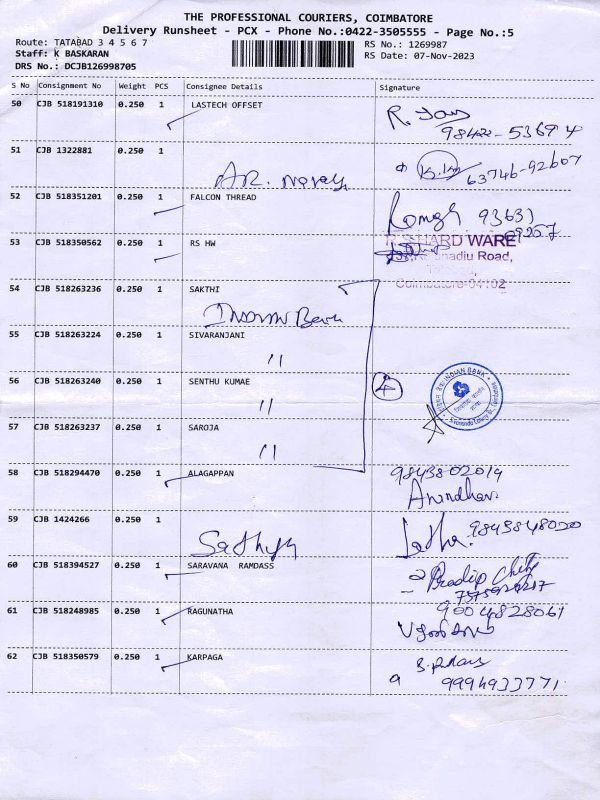 THE PROFESSIONAL COURIERS, COIMBATORE
Delivery Runsheet - PCX - Phone No.:0422-3505555 - Page No.:5
Route: TATABAD 3 4 5 6 7
RS No.: 1269987
Staff: K BASKARAN
RS Date: 07-Nov-2023
DRS No.: DCJB126998705
S No Consignment No Weight PCS Consignee Details Signature
50 CJB 518191310 0.250 1 LASTECH OFFSET
98422-53694
51 CJB 1322881 0.250 1
AR.
63746-92607
52 CJB 518351201 0.250 1 FALCON THREAD
93633
09257
53 CJB 518350562 0.250 1 RS HW
HARD WARE
Road,
Coimbatore
54 CJB 518263236 0.250 1 SAKTHI
Indian Bank
55 CJB 518263224 0.250 1 SIVARANJANI
11
56 CJB 518263240 0.250 1 SENTHU KUMAE
11
4
INDIAN BANK
57 CJB 518263237 0.250 1 SAROJA
11
58 CJB 518294470 0.250 1 ALAGAPPAN
9843802019
59 CJB 1424266 0.250 1
Sathya
Latha.
9843848020
60 CJB 518394527 0.250 1 SARAVANA RAMDASS
Pradip
61 CJB 518248985 0.250 1 RAGUNATHA
9004828061
62 CJB 518350579 0.250 1 KARPAGA
9994933771